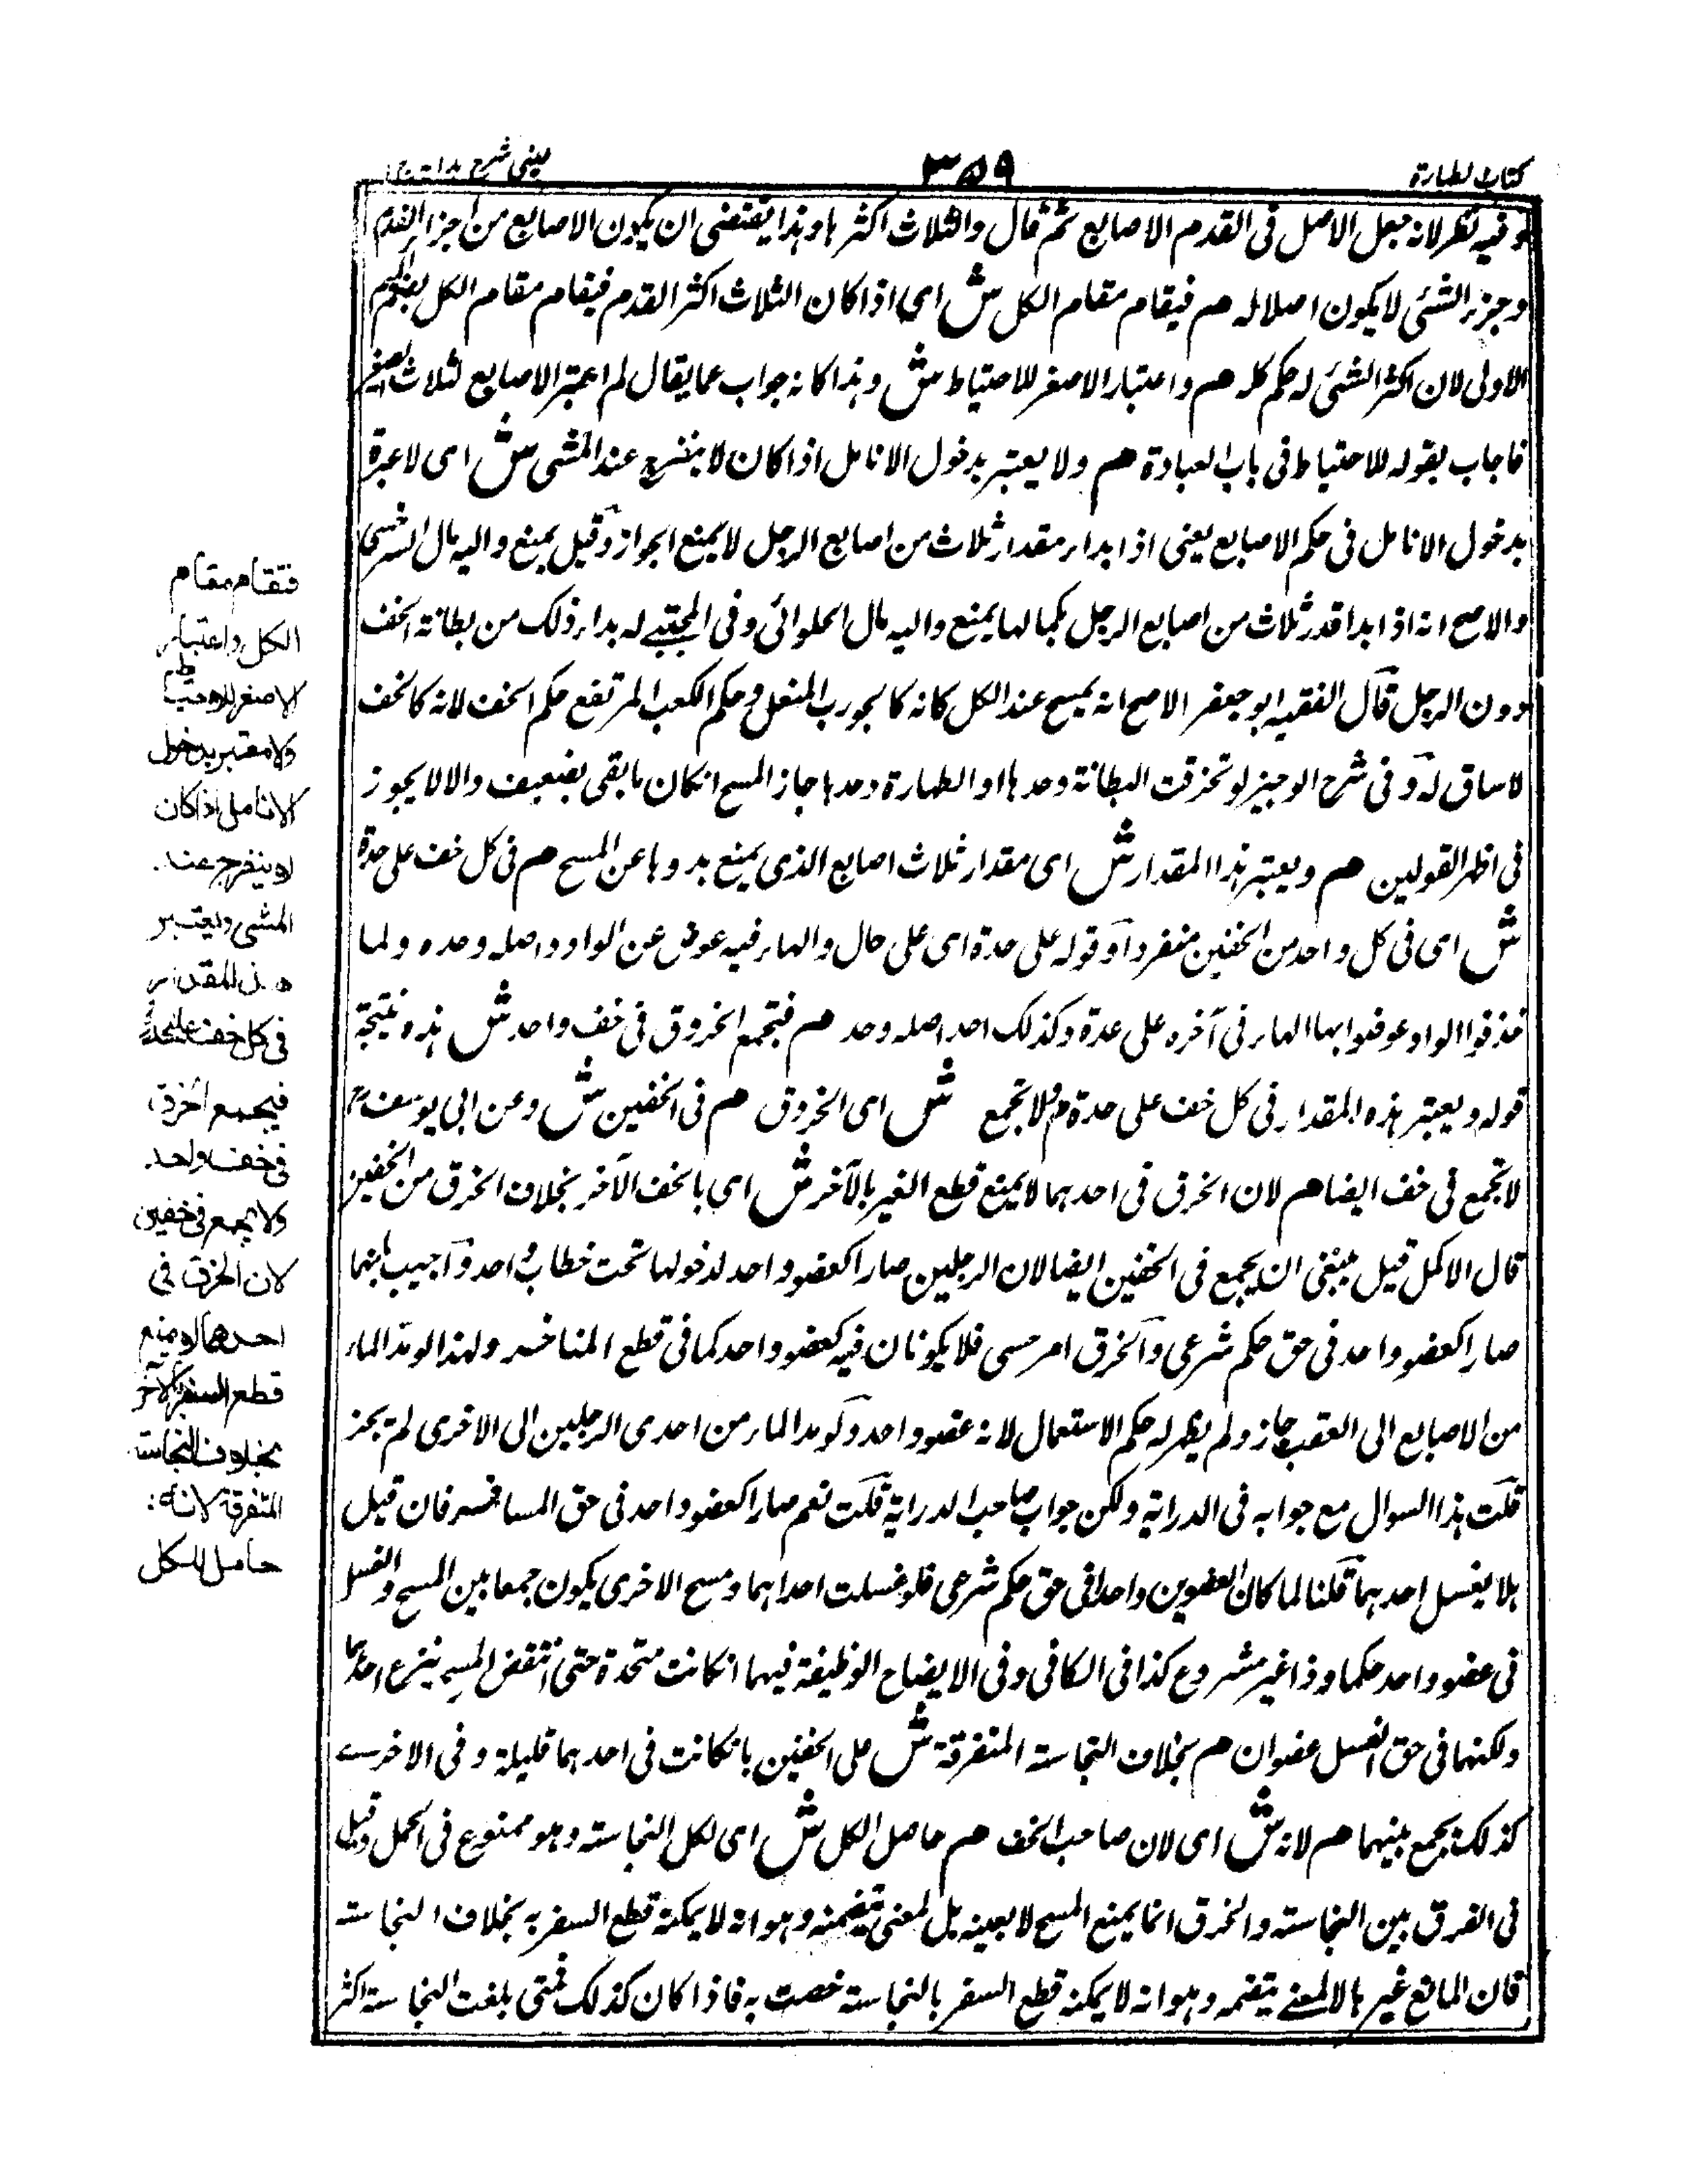 كتاب الطهارة
٣٥٩
عینی شرح هدایة ج ١
وفيه نظر لانه جعل الاصل فى القدم الاصابع ثم قال والثلاث اكثرها وهذا يقتضى ان يكون الاصابع من اجزاء القدم
وجزء الشئى لا يكون اصلا له هـم فيقام مقام الكل ش اى اذا كان الثلاث اكثر القدم فيقام مقام الكل
الاولى لان اكثر الشئى له حكم كله هـم واعتبار الاصغر للاحتياط ش وهذا كانه جواب عما يقال لم اعتبر الاصابع الثلاث الصغر
فاجاب بقوله للاحتياط فى باب العبادة هـم ولا يعتبر بدخول الانامل اذا كان لا ينفرج عند المشى ش اى لا عبرة
بدخول الانامل فى حكم الاصابع يعنى اذا بدا مقدار ثلاث من اصابع الرجل لا يمنع الجواز وقيل يمنع واليه مال السرخسى
والاصح انه اذا بدا قدر ثلاث من اصابع الرجل بكمالها يمنع واليه مال الحلوائى وفى المجتبى له بدا ذلك من بطانة الخف
دون الرجل قال الفقيه ابو جعفر الاصح انه يمسح عند الكل كانه كالجورب المنعل وحكم الكعب المرتفع حكم الخف لانه كالخف
لا ساق له وفى شرح الوجيز لو تخرقت البطانة وحدها او الطهارة وحدها جاز المسح ان كان ما بقى بضعيف والا لا يجوز
فى اظهر القولين هـم ويعتبر هذا المقدار ش اى مقدار ثلاث اصابع الذى يمنع بدوها عن المسح هـم فى كل خف على حدة
ش اى فى كل واحد من الخفين منفردا وقوله على حدة اى على حال والهاء فيه عوض عن الواو واصله وحده ولما
حذفوا الواو عوضوا بها الهاء فى آخره على عدة وكذلك احد اصله وحد هـم فتجمع الخروق فى خف واحد ش هذه نتيجة
قوله ويعتبر هذه المقدار فى كل خف على حدة هـم ولا تجمع ش اى الخروق هـم فى الخفين ش وعن ابى يوسف رح
لا تجمع فى خف ايضا هـم لان الخرق فى احدهما لا يمنع قطع السفر بالآخر ش اى بالخف الآخر بخلاف الخرق من الخفين
قال الاكمل قيل ينبغى ان يجمع فى الخفين ايضا لان الرجلين صارا كعضو واحد لدخولهما تحت خطاب واحد واجيب بانهما
صارا كعضو واحد فى حق حكم شرعى والخرق امر حسى فلا يكونان فيه كعضو واحد كما فى قطع المسافة ولهذا لو مد الماء
من الاصابع الى العقب جاز ولم يظهر له حكم الاستعمال لانه عضو واحد ولو مد الماء من احدى الرجلين الى الاخرى لم يجز
قلت هذا السوال مع جوابه فى الدراية ولكن جواب صاحب الدراية قلت نعم صارا كعضو واحد فى حق المسافر فان قيل
هلا يغسل احدهما قلنا لما كان العضوين واحدا فى حق حكم شرعى فلو غسلت احداهما ومسح الاخرى يكون جمعا بين المسح والغسل
فى عضو واحد حكما وذا غير مشروع كذا فى الكافى وفى الايضاح الوظيفة فيهما ان كانت متحدة حتى انتقض المسح بنزع احدهما
ولكنهما فى حق الغسل عضوان هـم بخلاف النجاسة المتفرقة ش على الخفين بان كانت فى احدهما قليلة وفى الاخرى
كذلك يجمع بينهما هـم لانه ش اى لان صاحب الخف هـم حامل الكل ش اى لكل النجاسة وهو ممنوع فى الحمل وقيل
فى الفرق بين النجاسة والخرق انما يمنع المسح لا بعينه بل لمعنى يتضمنه وهو انه لا يمكنه قطع السفر به بخلاف النجاسة
فان المانع غيرها لا لمعنى يتضمنه وهو انه لا يمكنه قطع السفر بالنجاسة خصت به فاذا كان كذلك فمتى بلغت النجاسة اكثر
فتقام مقام
الكل واعتبار
الاصغر للاحتياط
ولا معتبر بدخول
الانامل اذا كان
لا ينفرج عند
المشى ويعتبر
هذا المقدار
فى كل خف على حدة
فيجمع الخرق
فى خف واحد
ولا يجمع فى خفين
لان الخرق فى
احدهما لا يمنع
قطع السفر بالآخر
بخلاف النجاسة
المتفرقة لانه
حامل للكل